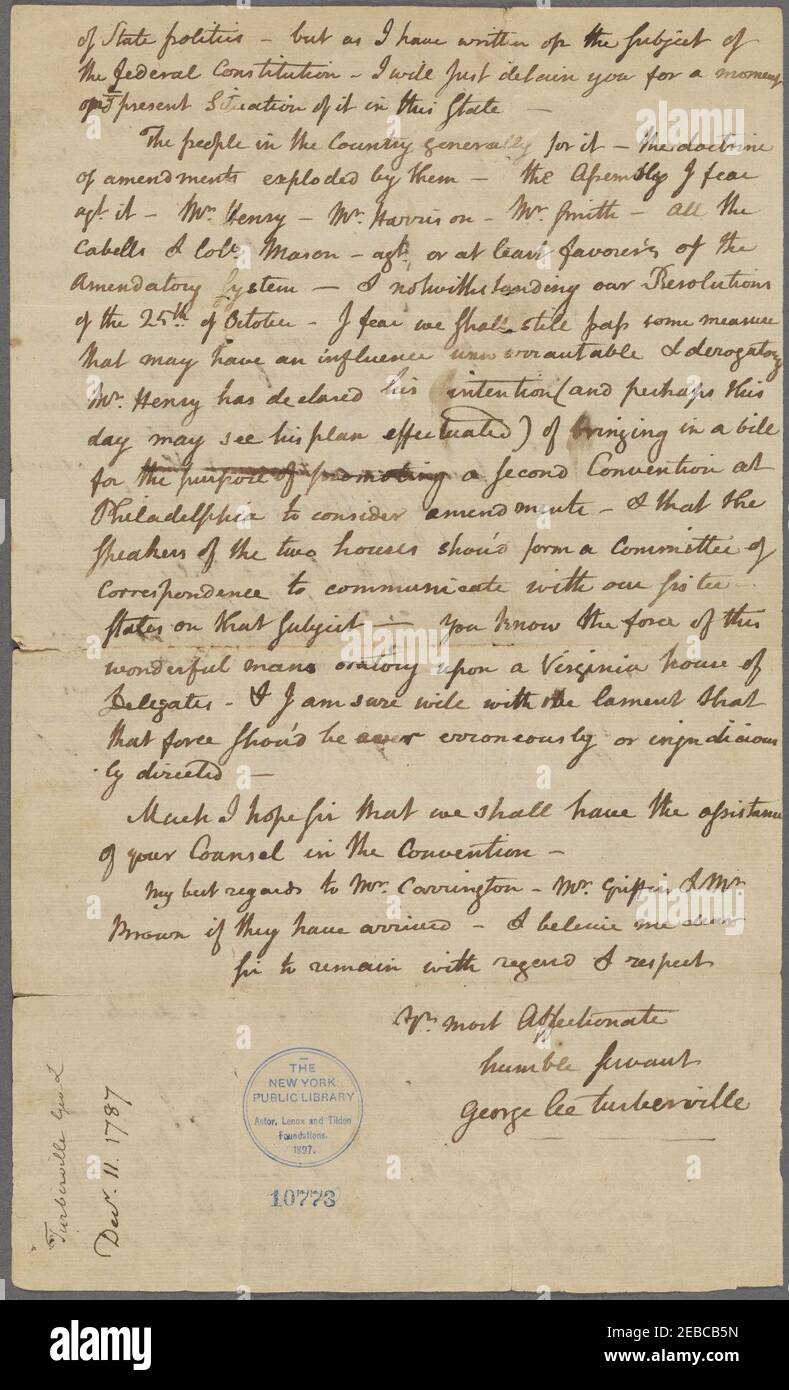 of State politics – but as I have written on the Subject of
the federal Constitution – I will Just detain you for a moment
present Situation of it in this State –
The people in the Country generally for it – the doctrine
of amendments exploded by them – the Assembly I fear
agt. it – Mr. Henry – Mr. Harrison – Mr. Smith – All the
Cabells & Colo. Mason – agt. or at least favorers of the
Amendatory System – & notwithstanding our Resolutions
of the 25th of October – I fear we shall still pass some measure
that may have an influence unwarrantable & derogatory
Mr. Henry has declared his intention (and perhaps this
day may see his plan effectuated) of bringing in a bill
for the purpose of promoting a second Convention at
Philadelphia to consider amendments – & that the
Speakers of the two houses shou'd form a Committee of
Correspondence to communicate with our sister
states on that subject – you know the force of this
wonderful mans oratory upon a Virginia house of
Delegates – & I am sure will with me lament that
that force shou'd be ever erroneously or injudicious
ly directed –
Much I hope Sir that we shall have the assistance
of your Counsel in the Convention –
My best regards to Mr. Carrington – Mr. Griffin & Mr.
Brown if they have arrived – & believe me dear
Sir to remain with regard & respect
Yr. most Affectionate
humble Servant
George Lee Turberville
Turberville Geo L
Decr. 11. 1787
THE
NEW YORK
PUBLIC LIBRARY
Astor, Lenox and Tilden
Foundations.
1897.
10773
alamy
Image ID: 2EBCB5N
www.alamy.com